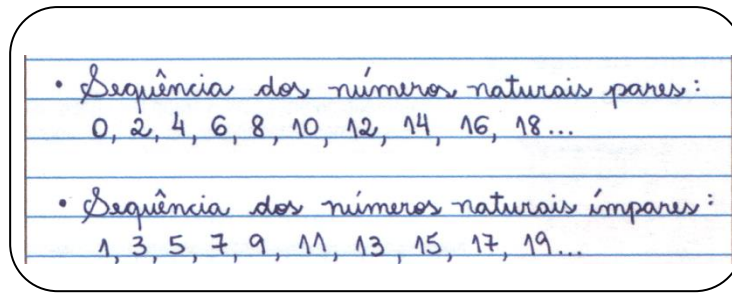 • Sequência dos números naturais pares:
0, 2, 4, 6, 8, 10, 12, 14, 16, 18...
• Sequência dos números naturais ímpares:
1, 3, 5, 7, 9, 11, 13, 15, 17, 19...